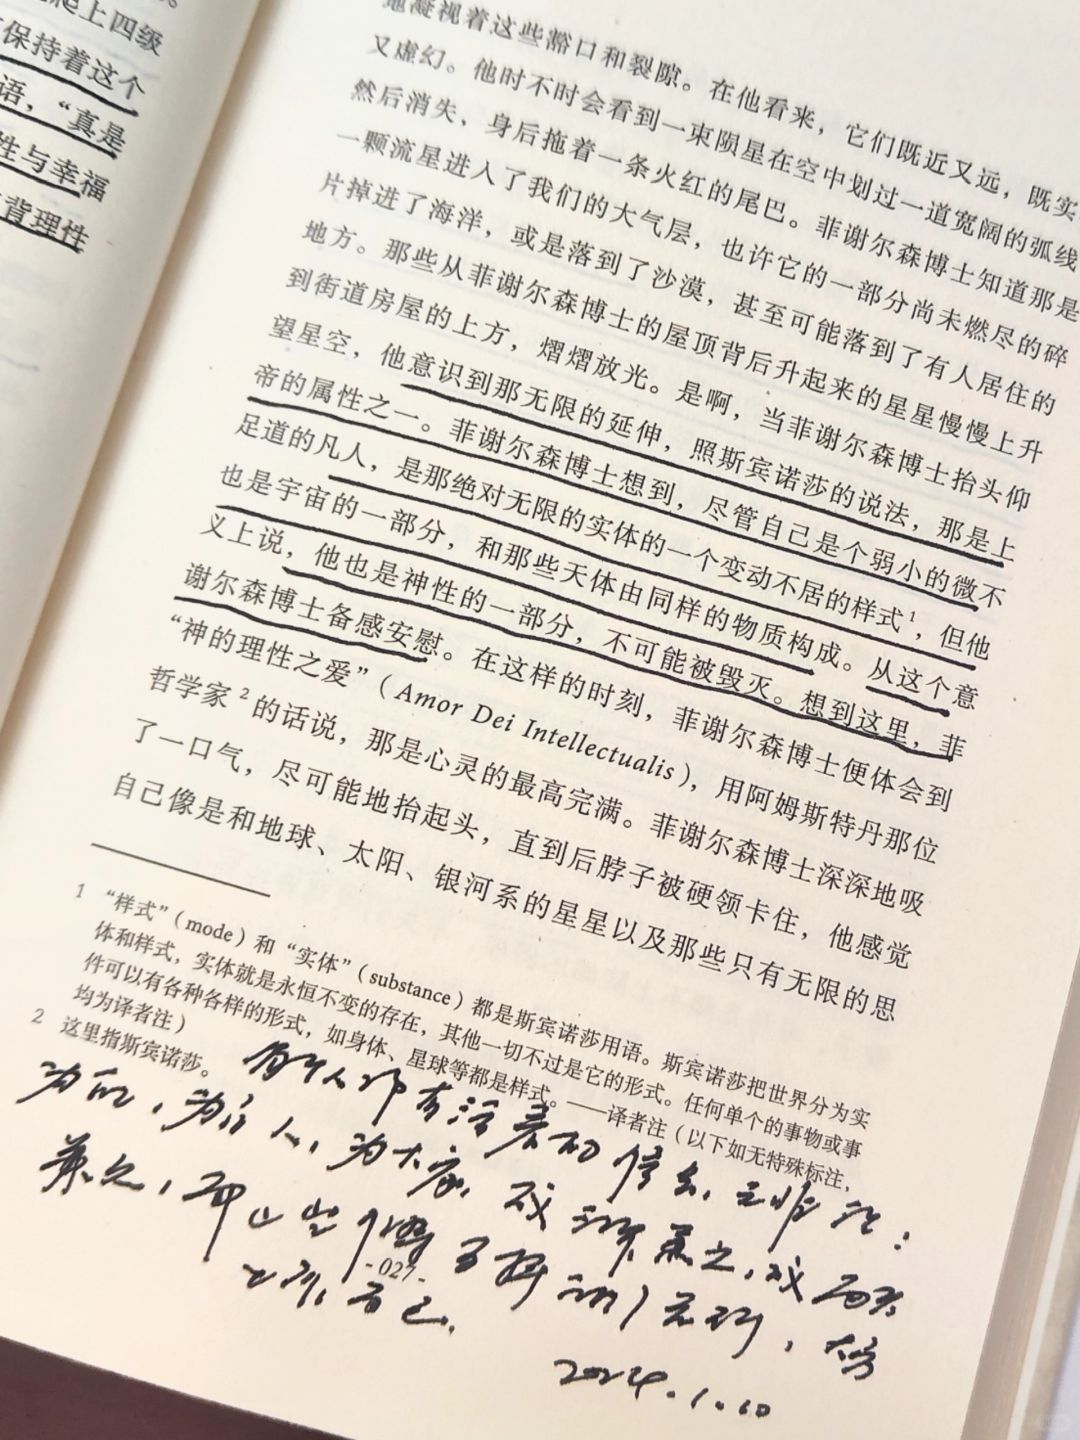 爬上四级
保持着这个
语，“真是
性与幸福
背理性
地凝视着这些豁口和裂隙。在他看来，它们既近又远，既实
又虚幻。他时不时会看到一束陨星在空中划过一道宽阔的弧线
然后消失，身后拖着一条火红的尾巴。菲谢尔森博士知道那是
一颗流星进入了我们的大气层，也许它的一部分尚未燃尽的碎
片掉进了海洋，或是落到了沙漠，甚至可能落到了有人居住的
地方。那些从菲谢尔森博士的屋顶背后升起来的星星慢慢上升
到街道房屋的上方，熠熠放光。是啊，当菲谢尔森博士抬头仰
望星空，他意识到那无限的延伸，照斯宾诺莎的说法，那是上
帝的属性之一。菲谢尔森博士想到，尽管自己是个弱小的微不
足道的凡人，是那绝对无限的实体的一个变动不居的样式1，但他
也是宇宙的一部分，和那些天体由同样的物质构成。从这个意
义上说，他也是神性的一部分，不可能被毁灭。想到这里，菲
谢尔森博士备感安慰。在这样的时刻，菲谢尔森博士便体会到
“神的理性之爱”（Amor Dei Intellectualis），用阿姆斯特丹那位
哲学家2的话说，那是心灵的最高完满。菲谢尔森博士深深地吸
了一口气，尽可能地抬起头，直到后脖子被硬领卡住，他感觉
自己像是和地球、太阳、银河系的星星以及那些只有无限的思
1 “样式”（mode）和“实体”（substance）都是斯宾诺莎用语。斯宾诺莎把世界分为实
体和样式，实体就是永恒不变的存在，其他一切不过是它的形式。任何单个的事物或事
件可以有各种各样的形式，如身体、星球等都是样式。——译者注（以下如无特殊标注，
均为译者注）
2 这里指斯宾诺莎。
- 027 -
2024.1.10